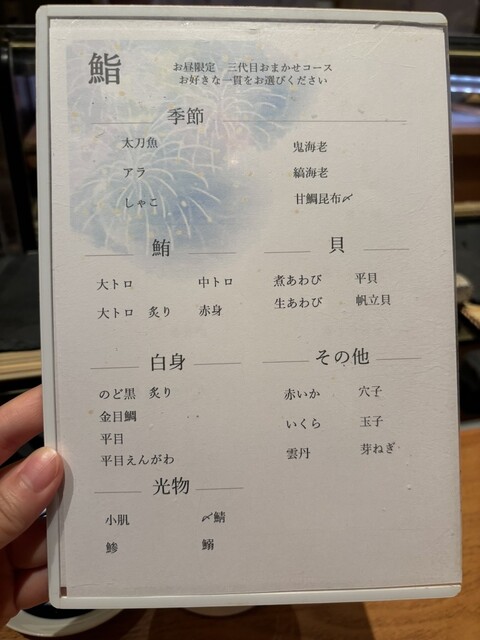 鮨
お昼限定 三代目おまかせコース
お好きな一貫をお選びください
季節
太刀魚 鬼海老
アラ 縞海老
しゃこ 甘鯛昆布〆
鮪
大トロ 中トロ
大トロ 炙り 赤身
貝
煮あわび 平貝
生あわび 帆立貝
白身
のど黒 炙り
金目鯛
平目
平目えんがわ
その他
赤いか 穴子
いくら 玉子
雲丹 芽ねぎ
光物
小肌 〆鯖
鯵 鰯